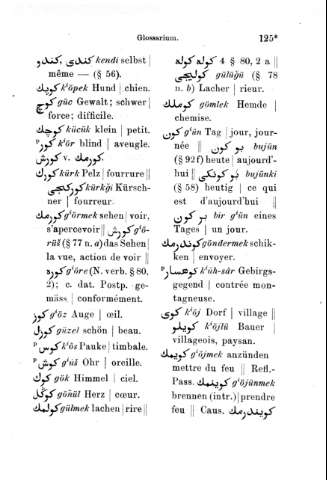 Glossarium. 125*
کندی, کندو kendi selbst |
même — (§ 56).
کوپك k'öpek Hund | chien.
کوچ güc Gewalt; schwer |
force; difficile.
کوچك kücük klein | petit.
ᵖ کور k'ör blind | aveugle.
کورش v. کورمك.
کورك kürk Pelz | fourrure ||
کورکجی kürkği Kürsch-
ner | fourreur.
کورمك g'örmek sehen | voir,
s'apercevoir || کورش g'ö-
rüš (§ 77 n. a) das Sehen |
la vue, action de voir ||
کوره g'öre (N. verb. § 80,
2); c. dat. Postp. ge-
mäss | conformément.
کوز g'öz Auge | œil.
کوزل güzel schön | beau.
ᵖ کوس k'ös Pauke | timbale.
ᵖ کوش g'úš Ohr | oreille.
کوك gök Himmel | ciel.
کوکل göñül Herz | cœur.
کولمك gülmek lachen | rire ||
کوله کوله 4 § 80, 2 a ||
کولیجی gülüğü (§ 78
n. b) Lacher | rieur.
کوملك gömlek Hemde |
chemise.
کون g'ün Tag | jour, jour-
née || بو کون bujün
(§ 92 f) heute | aujourd'-
hui || بو کونکی bujünki
(§ 58) heutig | ce qui
est d'aujourd'hui ||
بر کون bir g'ün eines
Tages | un jour.
کوندرمك göndermek schik-
ken | envoyer.
ᵖ کوهسار k'úh-sâr Gebirgs-
gegend | contrée mon-
tagneuse.
کوی k'öj Dorf | village ||
کویلو k'öjlü Bauer |
villageois, paysan.
کویمك g'öjmek anzünden
mettre du feu || Refl.-
Pass. کوینمك g'öjünmek
brennen (intr.) | prendre
feu || Caus. کویندرمك